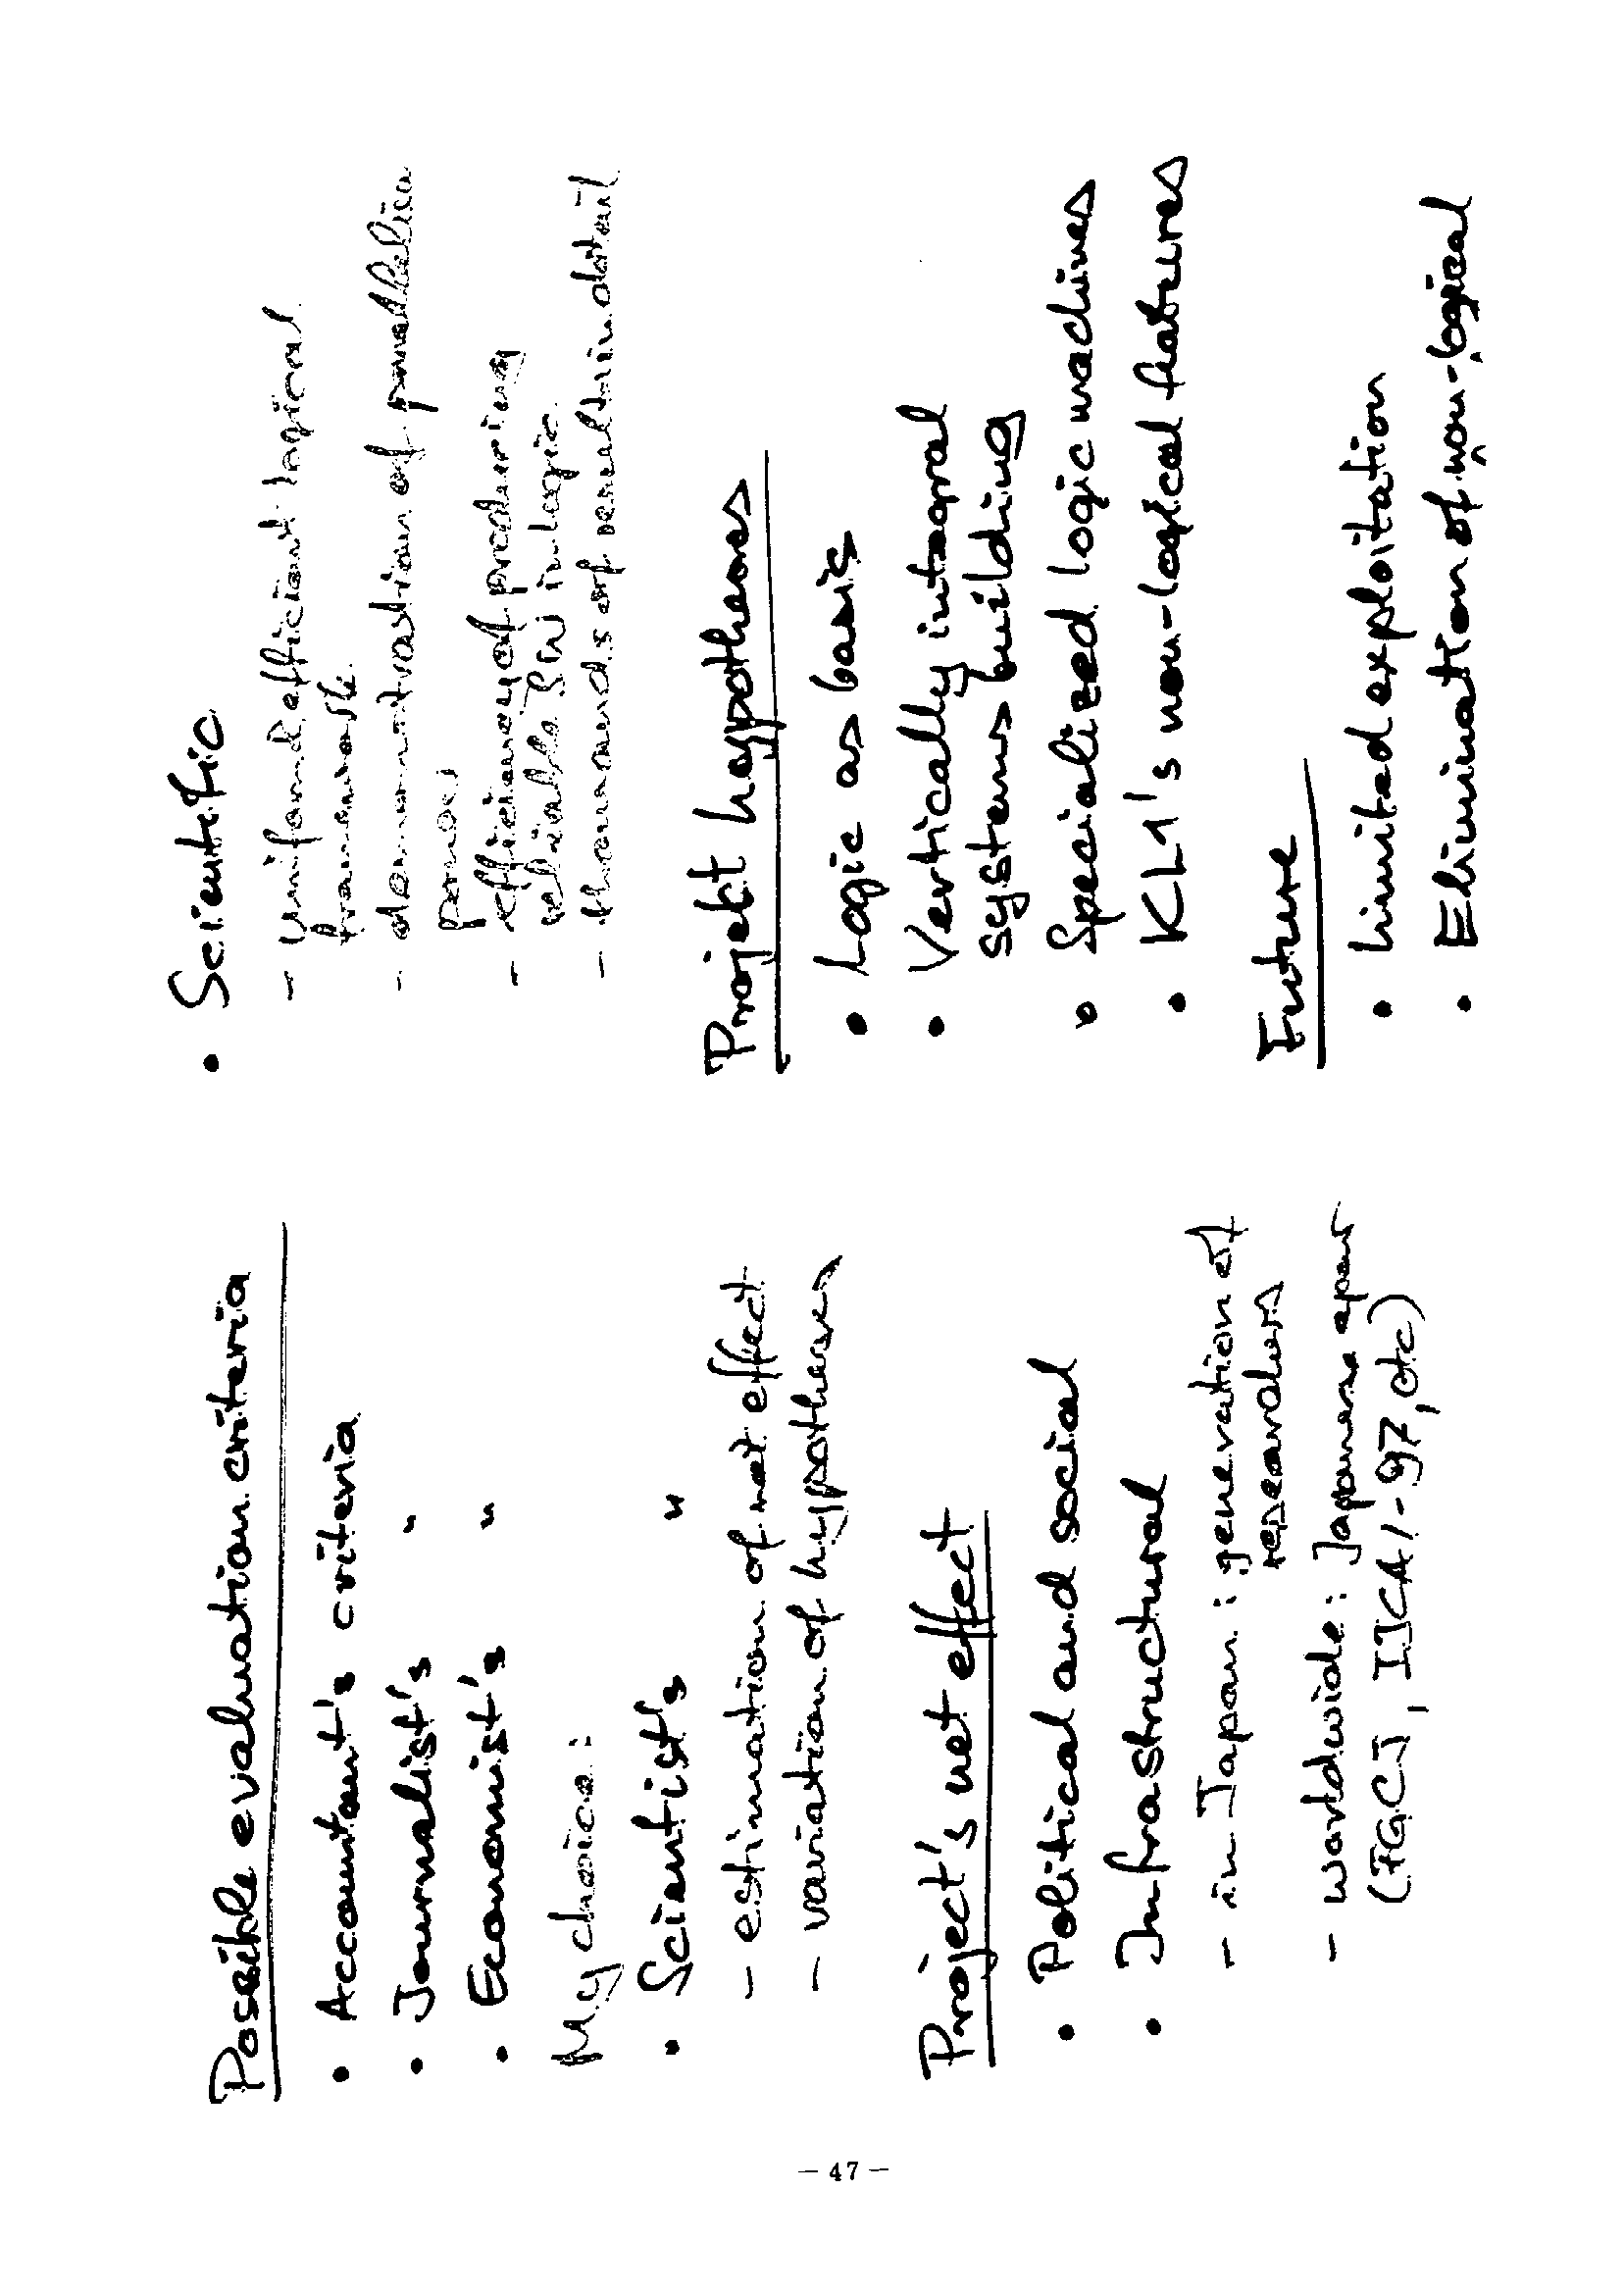 Possible evaluation criteria
• Accountant's criteria
• Journalist's "
• Economist's "
My choice:
• Scientist's "
- estimation of net effect
- variation of hypotheses
Project's net effect
• Political and social
• Infrastructural
- in Japan: generation of
researchers
- worldwide: Japanese
(FGCJ, IJCAI-97, etc)
• Scientific
- unif and efficient logical
framework
- demonstration of
power
- efficiency of producing
reliable SW in logic
- thousands of results in detail
Projekt hypotheses
• Logic as basis
• Vertically integral
systems building
• Specialized logic machines
• KL1's non-logical features
Future
• Limited exploitation
• Elimination of non-logical
— 47 —